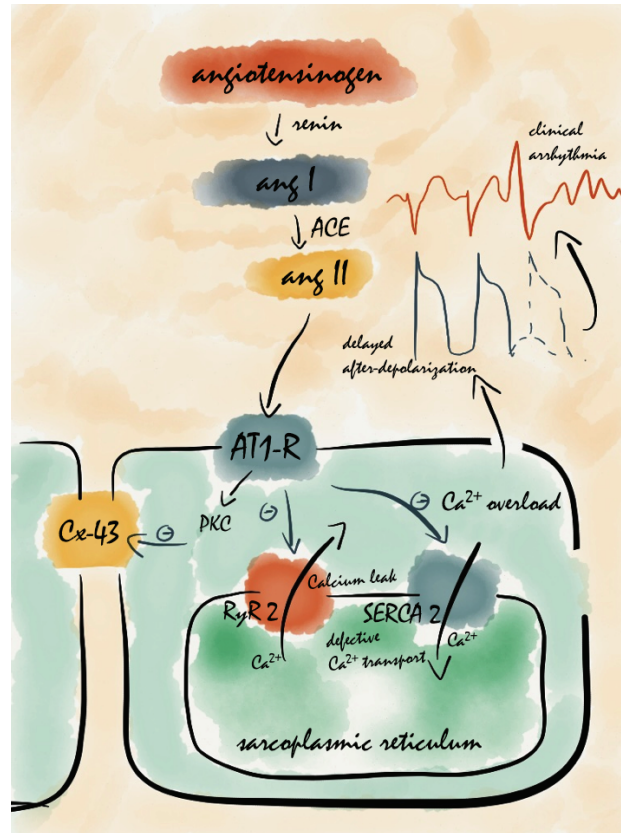 angiotensinogen
renin
clinical
arrhythmia
ang I
ACE
ang II
delayed
after-depolarization
AT1-R
Cx-43
⊖
PKC
⊖
⊖
Ca²⁺ overload
Calcium leak
RyR 2
SERCA 2
Ca²⁺
defective
Ca²⁺ transport
Ca²⁺
sarcoplasmic reticulum